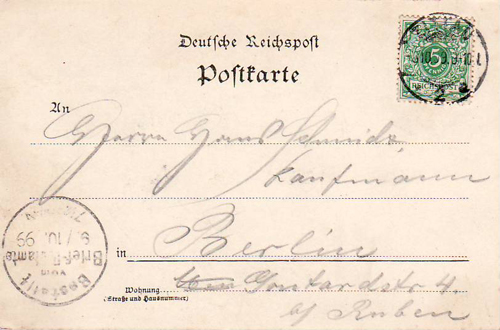 Deutsche Reichspost
Postkarte
5
REICHSPOST
2 a
An Herrn Hans Schmidt,
Kaufmann
in Berlin
Wohnung Gontardstr 4.
(Straße und Hausnummer)
b/ Ruben
Bestellt
vom
Brief-Postamte
9. / 10. 99